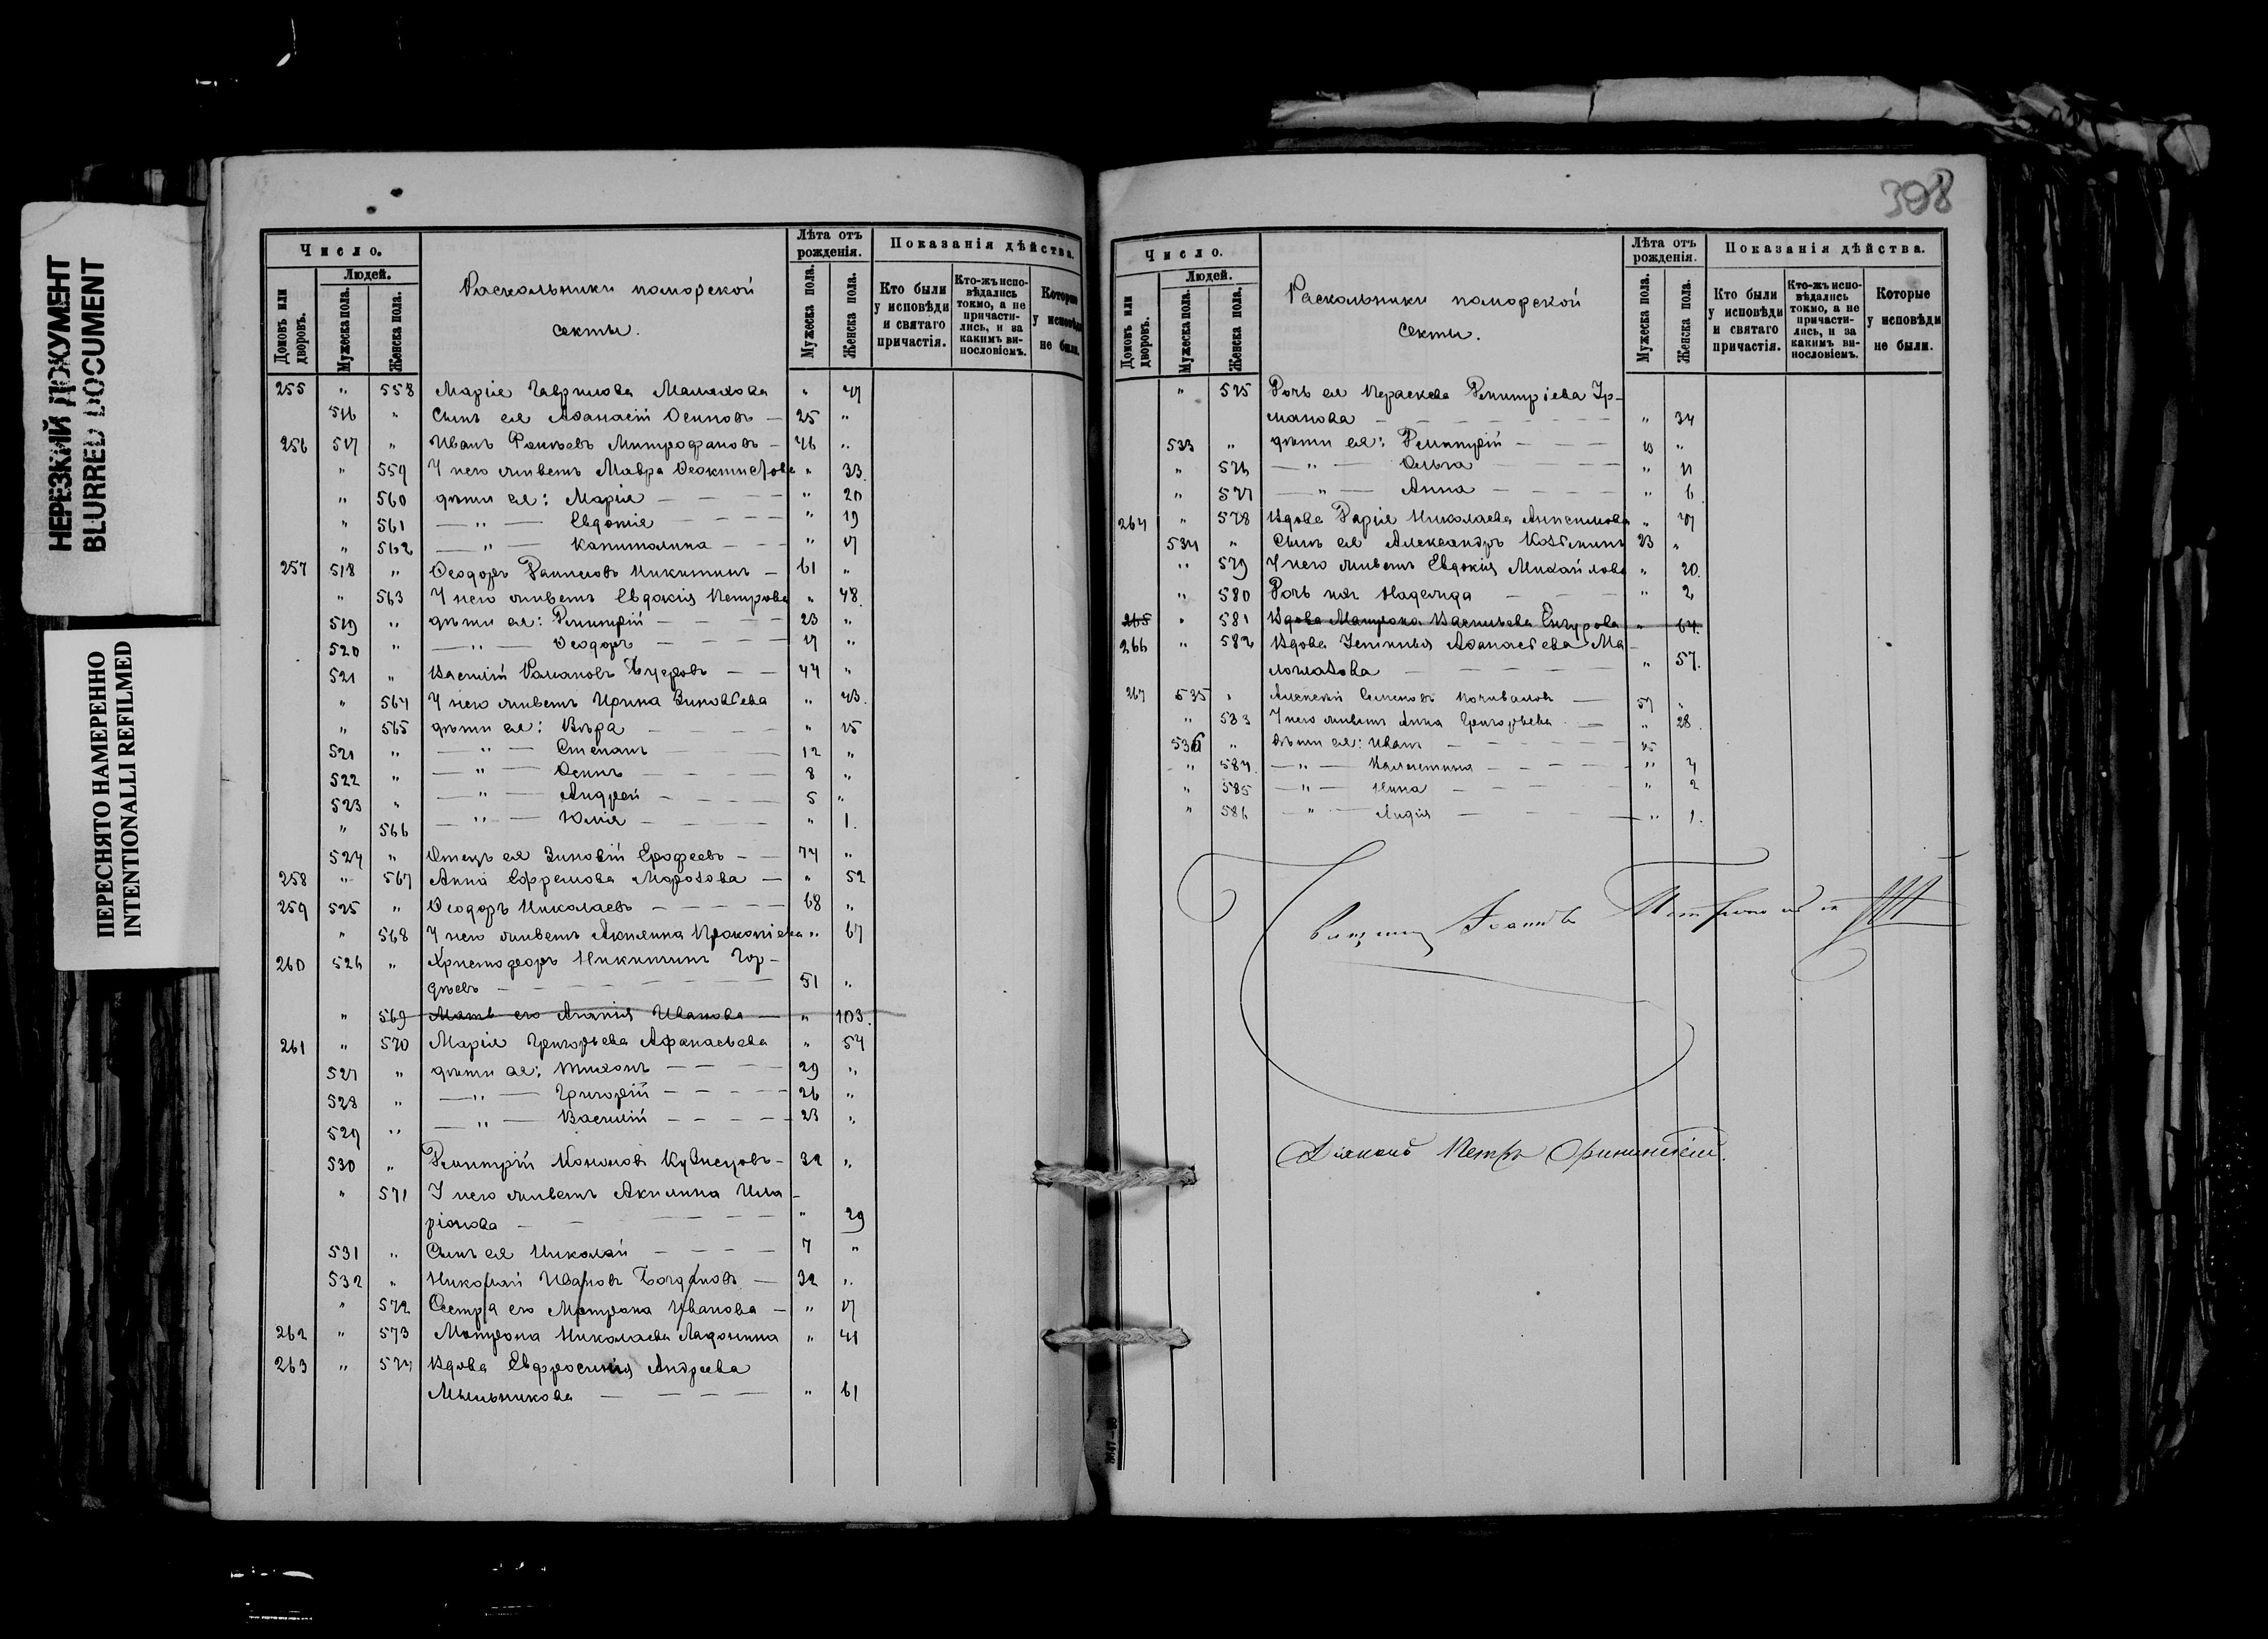 НЕРЕЗКИЙ ДОКУМЕНТ
BLURRED DOCUMENT
ПЕРЕСНЯТО НАМЕРЕННО
INTENTIONALLI REFILMED
Число.
Людей.
Домовъ или дворовъ.
Мужеска пола.
Женска пола.
Раскольники поморской
секты.
Лѣта отъ рожденія.
Мужеска пола.
Женска пола.
Показанія дѣйства.
Кто были у исповѣди и святаго причастія.
Кто-жъ испо-вѣдались токмо, а не причасти-лись, и за какимъ ви-нословіемъ.
Которые у исповѣди не были.
255 " 558 Марія Гаврилова " 47
516 " Сынъ ея Аѳанасій Осиповъ — 25 "
256 517 " Иванъ Митрофановъ — 46 "
" 559 У него живетъ Мавра Ѳеоктистова " 33.
" 560 дѣти ея: Марія — " 20
" 561 — " — Евдокія — " 19
" 562 — " — Капитолина — " 17
257 518 " Ѳеодоръ Данииловъ Никитинъ — 61 "
" 563 У него живетъ Евдокія Петрова " 48.
519 " дѣти ея: Димитрій — 23 "
520 " — " — Ѳеодоръ — 17 "
521 " Василій Романовъ — 44 "
" 564 У него живетъ Ирина Зиновьева " 43.
" 565 дѣти ея: Вѣра — " 15
521 " — " — Степанъ — 12 "
522 " — " — Осипъ — 8 "
523 " — " — Андрей — 5 "
" 566 — " — Юлія — " 1.
524 " Отецъ ея Зиновій Ерофеевъ — 74 "
258 " 567 Анна Ефремова Морозова — " 52
259 525 " Ѳеодоръ Николаевъ — 68 "
" 568 У него живетъ Акилина Прокопіева " 67
260 526 " Христофоръ Никитинъ Гор-
дѣевъ — 51 "
" 569 Мать его Агапія Иванова — " 103.
261 " 570 Марія Григорьева Афанасьева " 54
527 " дѣти ея: Тихонъ — 29 "
528 " — " — Григорій — 26 "
529 " — " — Василій — 23 "
530 " Димитрій Кононовъ Кузнецовъ — 32 "
" 571 У него живетъ Акилина Ила-
ріонова — " 29
531 " Сынъ ея Николай — 7 "
532 " Николай Ивановъ Богдановъ — 32 "
" 572 Сестра его Матрона Иванова — " 17
262 " 573 Матрона Николаева Ладонина " 41
263 " 574 Вдова Евфросинія Андреева
Мыльникова — " 61
398
Число.
Людей.
Домовъ или дворовъ.
Мужеска пола.
Женска пола.
Раскольники поморской
секты.
Лѣта отъ рожденія.
Мужеска пола.
Женска пола.
Показанія дѣйства.
Кто были у исповѣди и святаго причастія.
Кто-жъ испо-вѣдались токмо, а не причасти-лись, и за какимъ ви-нословіемъ.
Которые у исповѣди не были.
" 575 Дочь ея Параскева Димитріева Ур-
манова — " 34
533 " дѣти ея: Димитрій — "
" 576 — " — Ольга — " 11
" 577 — " — Анна — " 6.
264 " 578 Вдова Дарія Николаева Анисимова " 47
534 " Сынъ ея Александръ Козьминъ 23 "
" 579 У него живетъ Евдокія Михайлова " 20.
" 580 Дочь ихъ Надежда — " 2
265 " 581 Вдова Матрона Васильева " 64.
266 " 582 Вдова Устинья Аѳанасьева Ма-
— " 57.
267 535 " Алексій Семеновъ — 57 "
" 583 У него живетъ Анна Григорьева — " 28.
536 " дѣти ея: Иванъ — 15
" 584. — " — Валентина — " 4
" 585 — " — Нина — " 2
" 586 — " — Лидія — " 1.
Іоаннъ
Діаконъ Петръ
3647—96